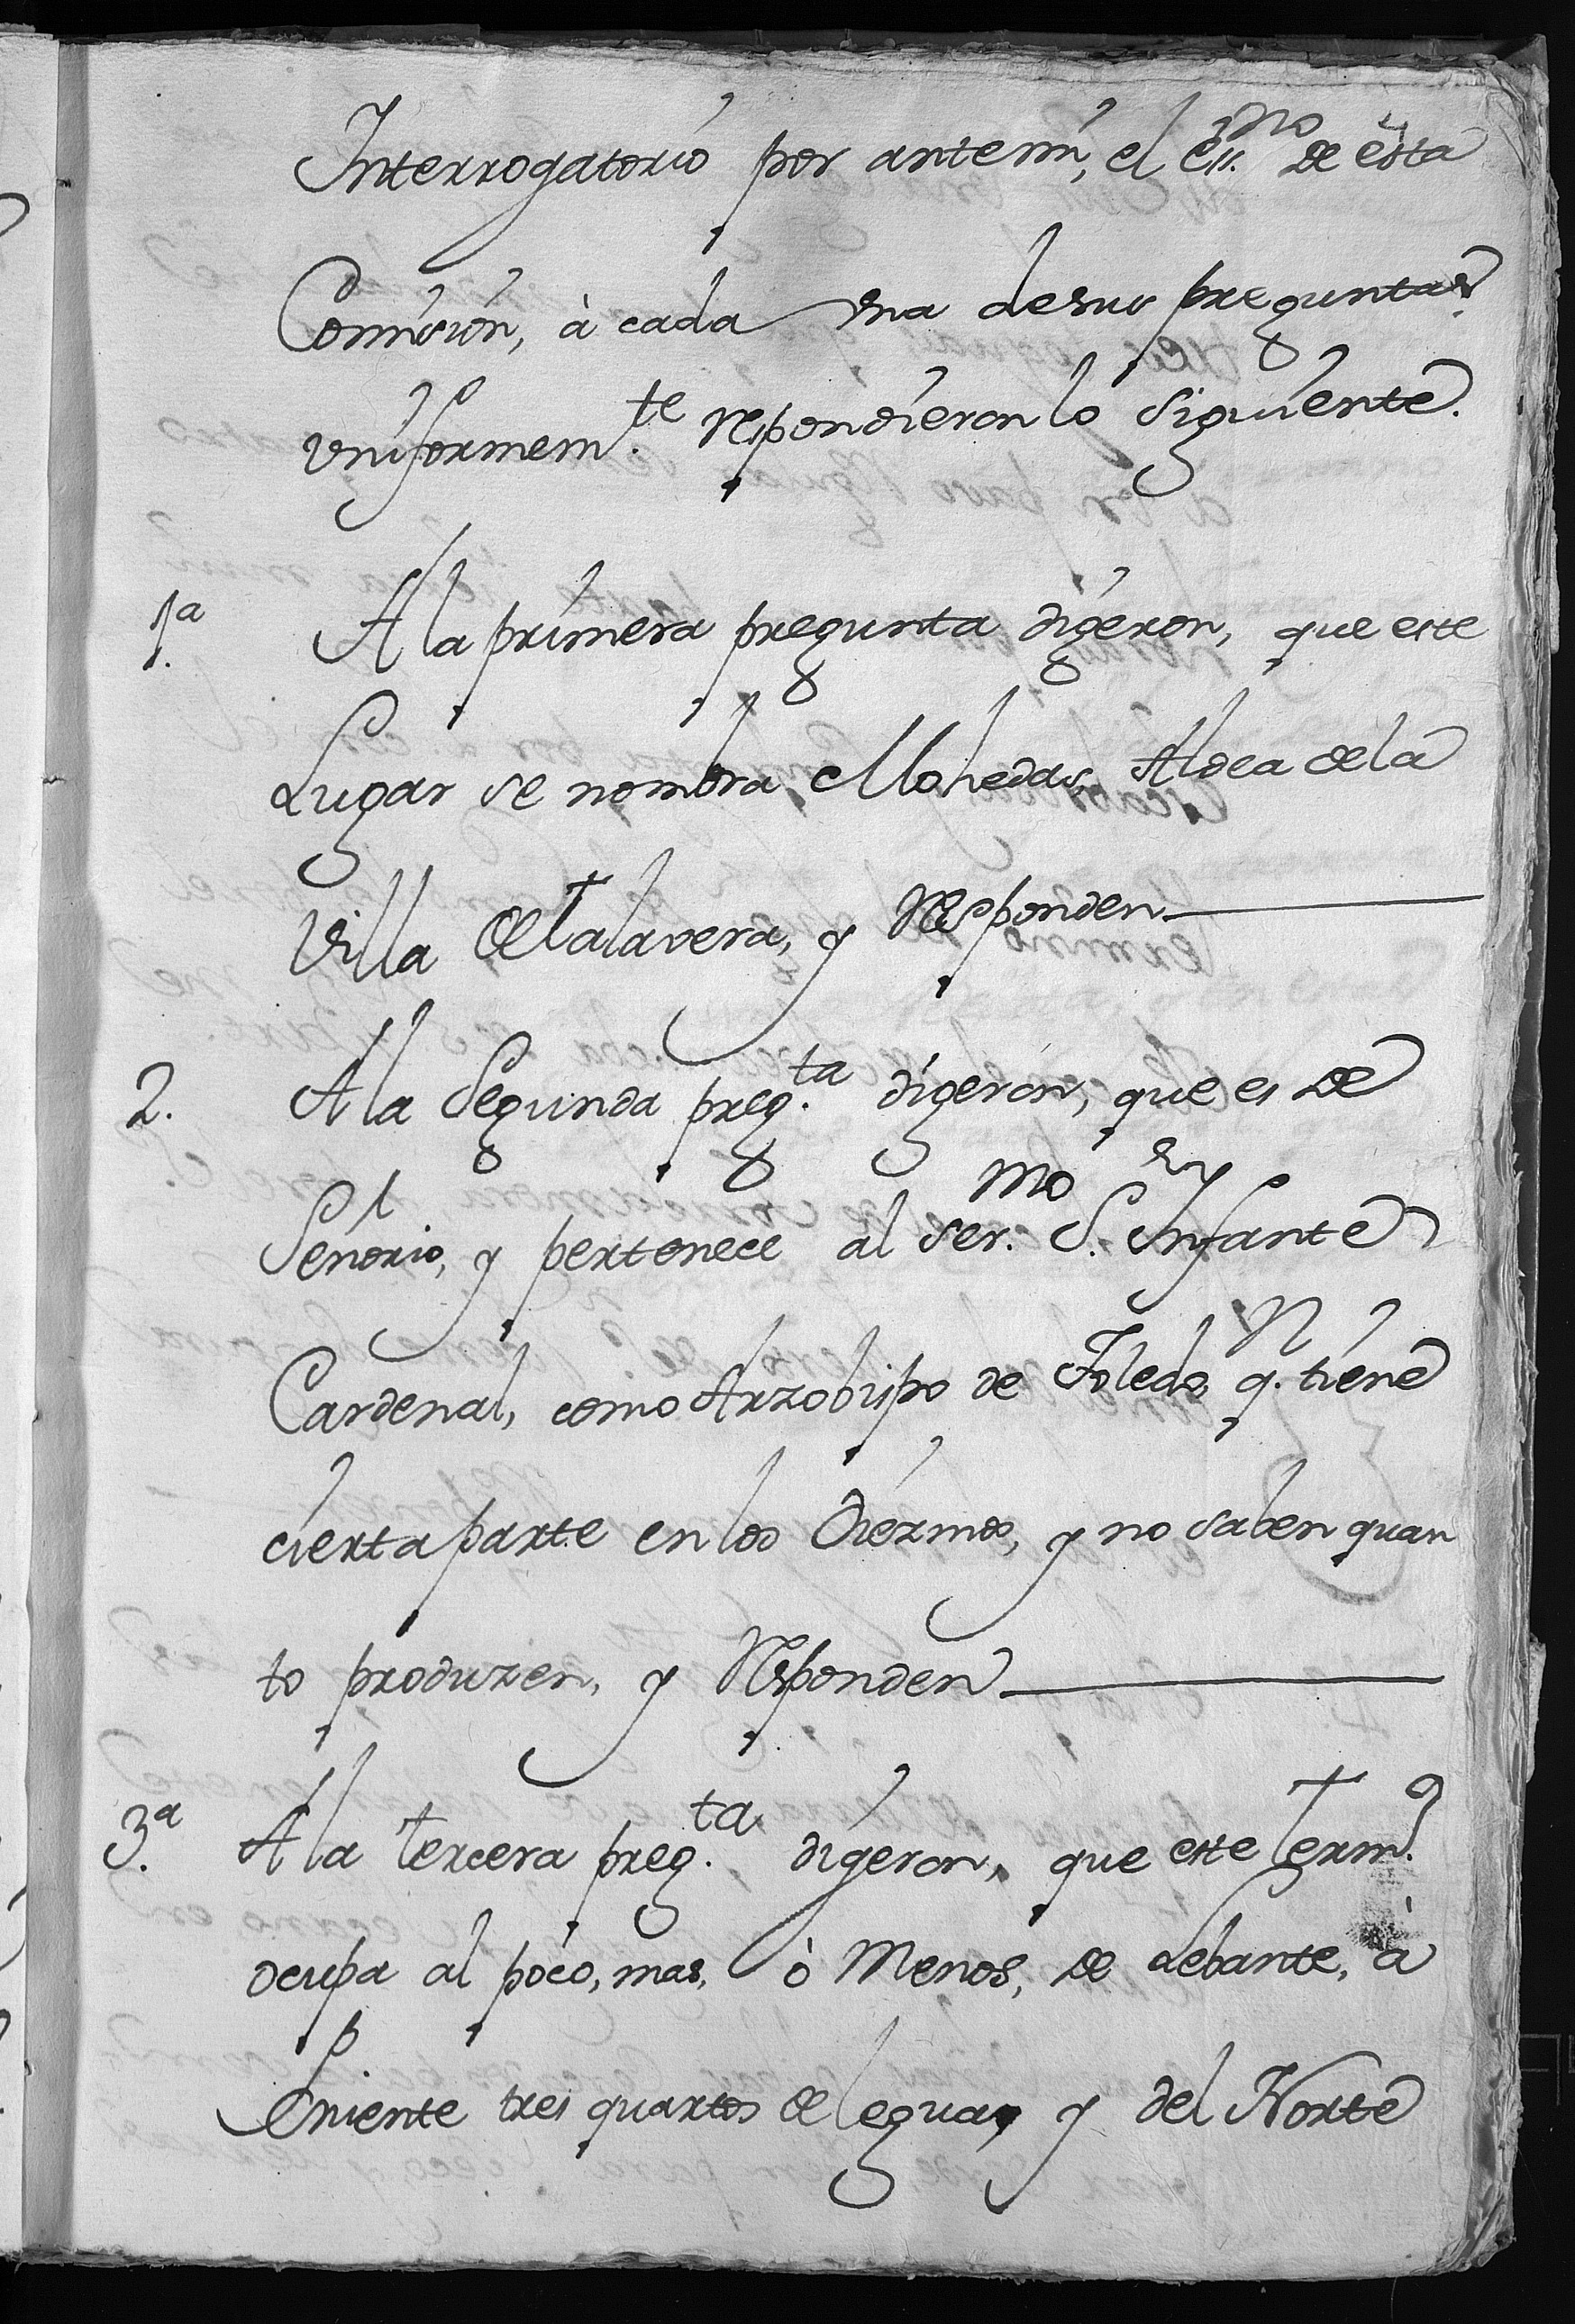 Interrogatorio por antemi, el ess.no de esta
Comision, à cada una desus preguntas
uniformem.te respondieron lo siguiente.
1.a A la primera pregunta digeron, que este
Lugar se nombra Mohedas, Aldea dela
Villa de Talavera, y responden
2. A la Segunda preg.ta digeron, que es de
Señorio, y pertenece al Ser.mo S.or Infante
Cardenal, como Arzobispo de Toledo, q. tiene
cierta parte en los Diezmos, y no saben quan
to produzen, y responden
3.a A la tercera preg.ta digeron, que este term.o
ocupa al poco, mas, ò menos, de Lebante, à
Poniente tres quartos de legua, y del Norte